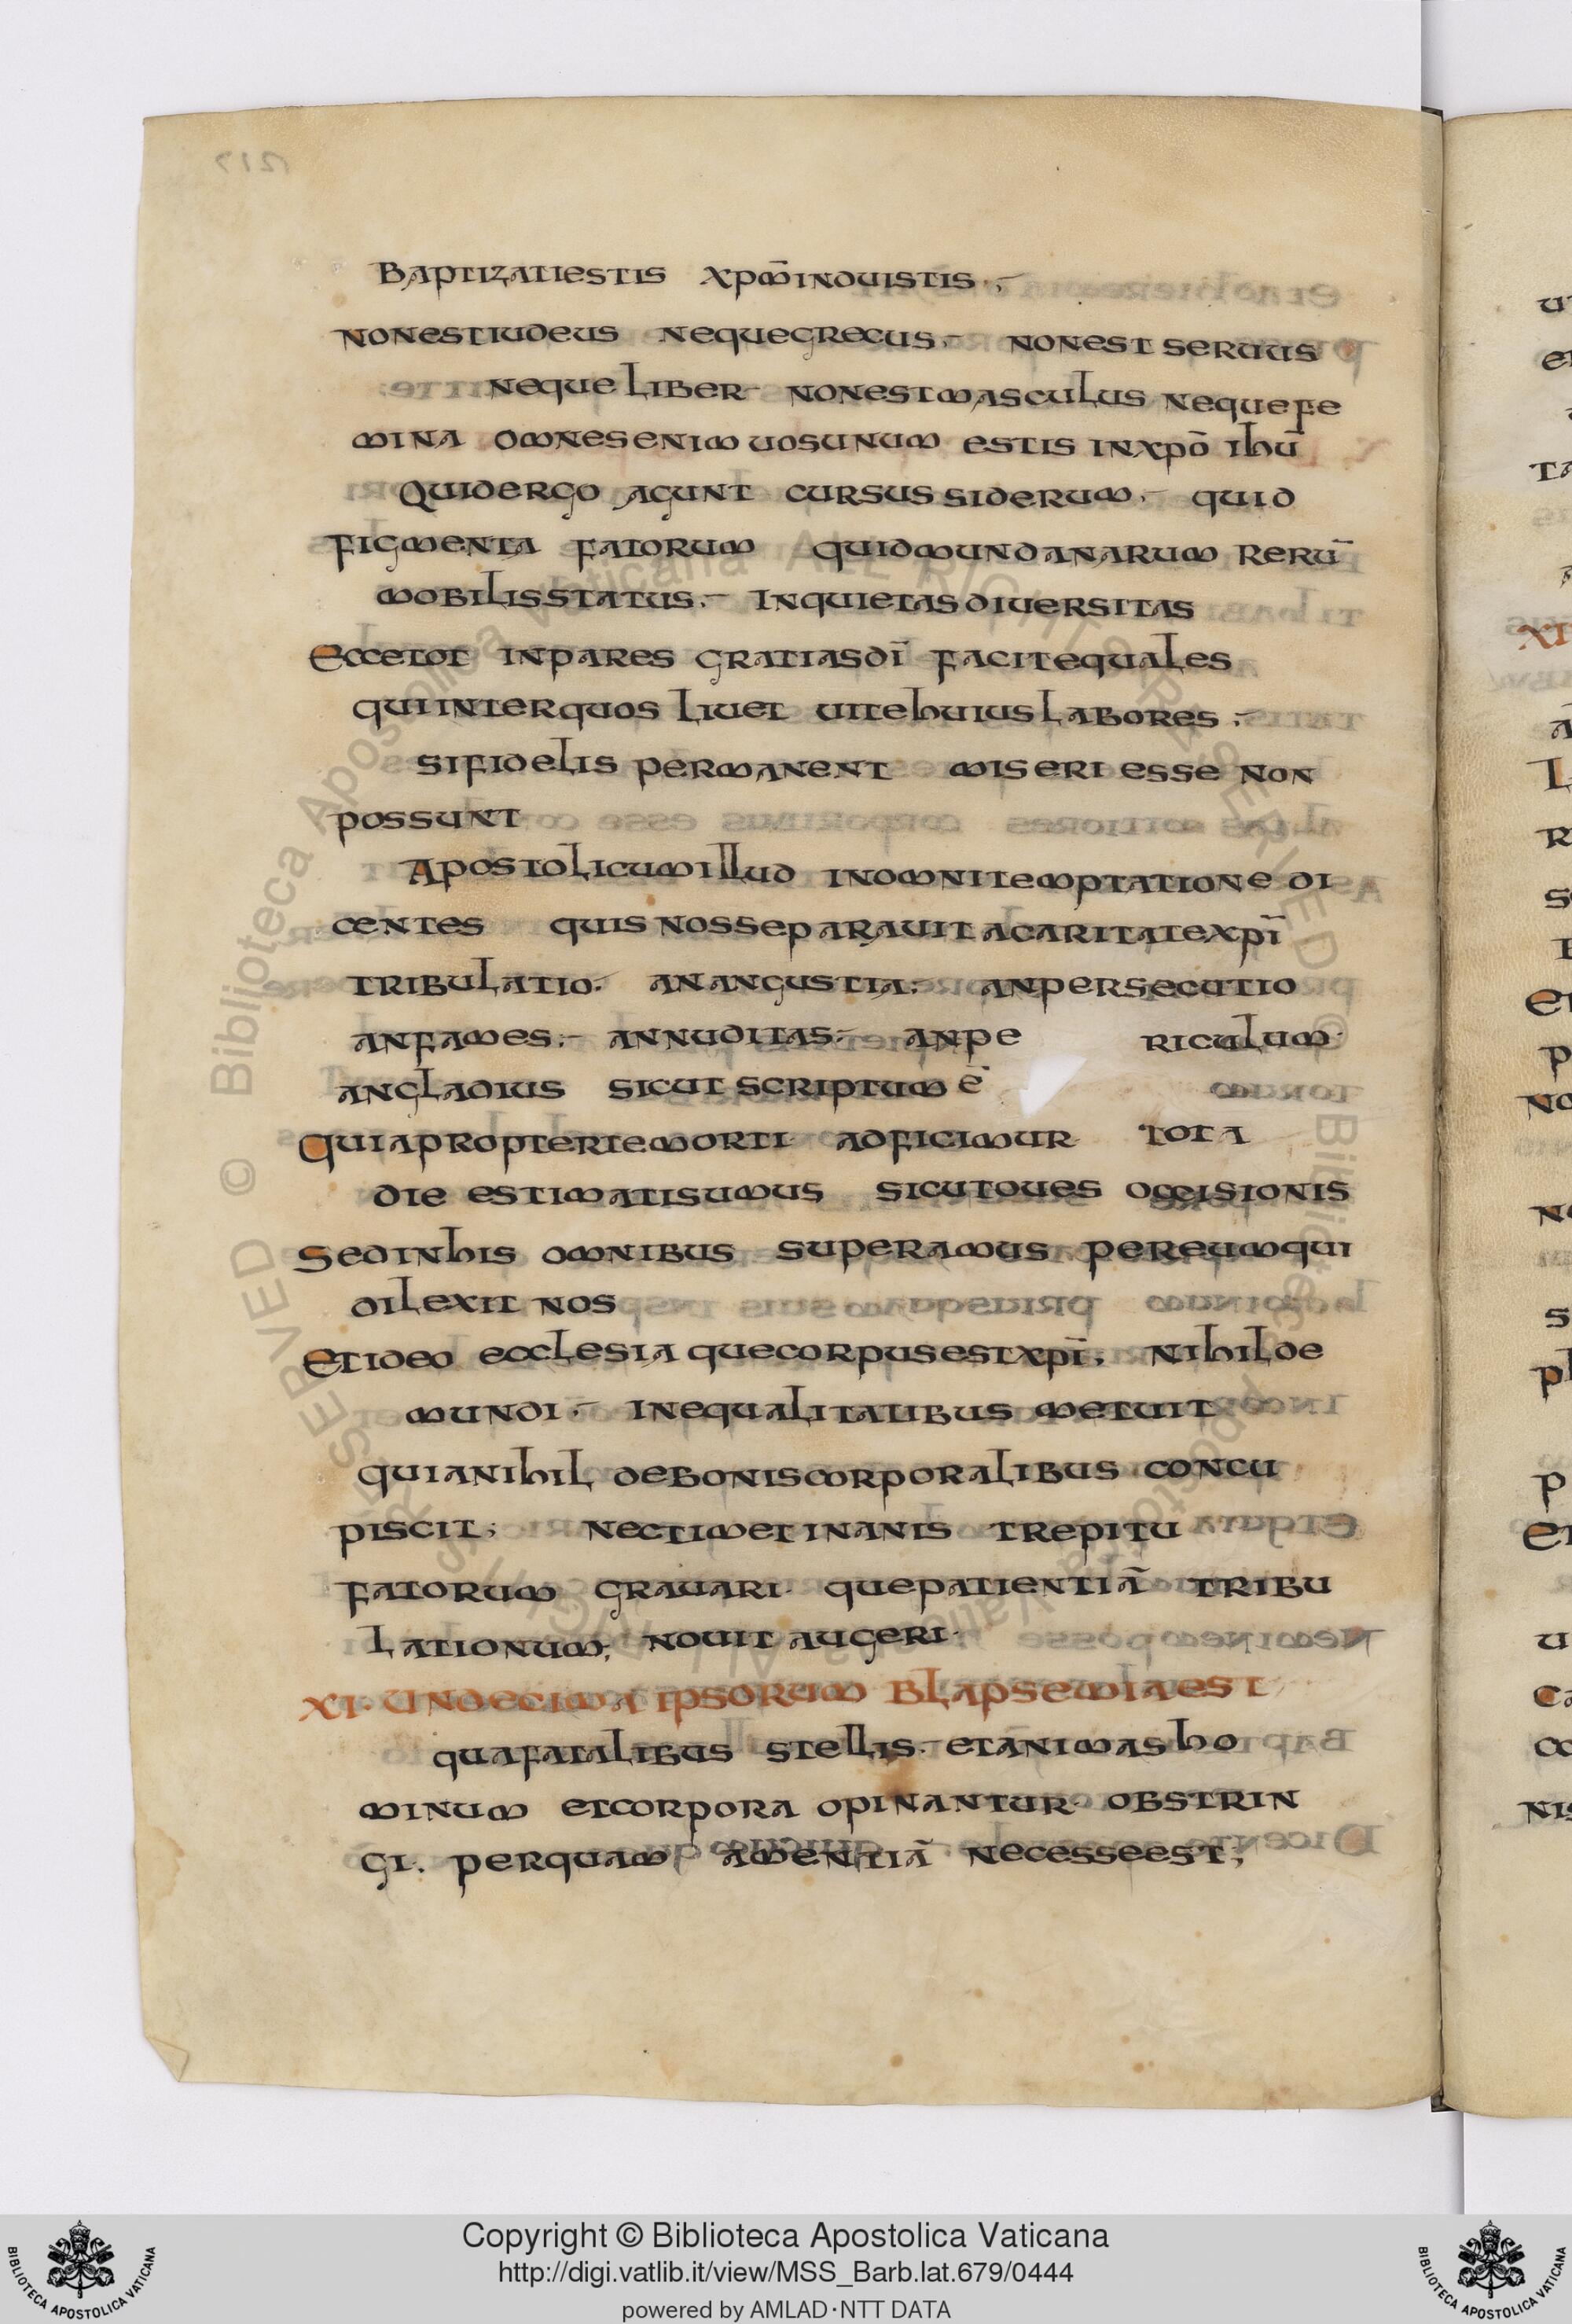 Baptizatiestis xpm̄induistis
nonestiudeus nequegrecus nonest seruus
neque liber nonestmasculus nequefe
mina omnesenimuosunum estis inxpō ihū
Quidergo agunt cursus siderum quid
figmenta fatorum quidmundanarum rerū
mobilisstatus inquietasdiuersitas
Eccetot inpares gratiasdī facitequales
quiinterquos liuet uitehuiuslabores
sifidelis permanent miseri esse non
possunt
Apostolicumillud inomnitemptatione di
centes quis nosseparauit acaritatexpī
tribulatio. anangustia. anpersecutio
anfames. annuditas. anpe riculum
angladius sicut scriptum ē
Quiapropterte morti adficimur tota
die estimatisumus sicutoues occisionis
Sedinhis omnibus superamus pereumqui
dilexit nos
Etideo ecclesia quecorpusestxpī. nihilde
mundi. inequalitatibus metuit
quianihil debonis corporalibus concu
piscit; nectimet inanis trepitu
fatorum grauari quepatientiā tribu
lationum; nouit augeri
XI. Undecima ipsorum blapsemia est
quafatalibus stellis. etanimas ho
minum etcorpora opinantur obstrin
gi. perquam amentiā necesseest;
217
Copyright © Biblioteca Apostolica Vaticana
http://digi.vatlib.it/view/MSS_Barb.lat.679/0444
powered by AMLAD·NTT DATA
BIBLIOTECA APOSTOLICA VATICANA
BIBLIOTECA APOSTOLICA VATICANA